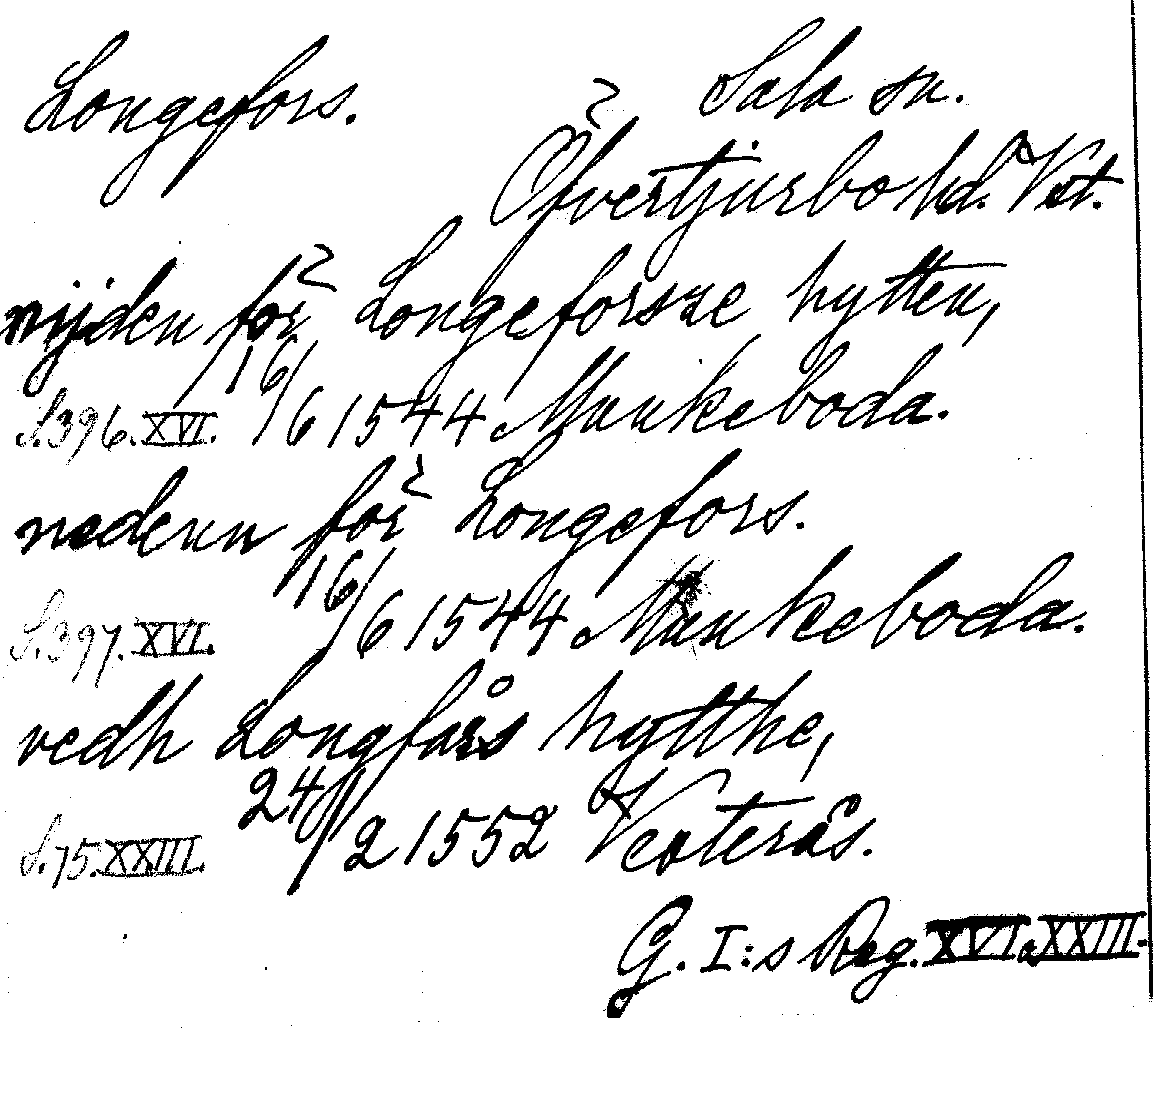 Longefors. Sala sn.
Öfvertjurbo hd. Vst.
nijden för Longeforsne hytten,
S. 396. XVI. 16/6 1544 Munkeboda.
nedenn för Longefors.
S. 397. XVI. 16/6 1544 Munkeboda.
vedh Longfårs hytthe,
S. 75. XXIII. 24/2 1552 Vesterås.
G. I:s Reg. XVI. a XXIII.